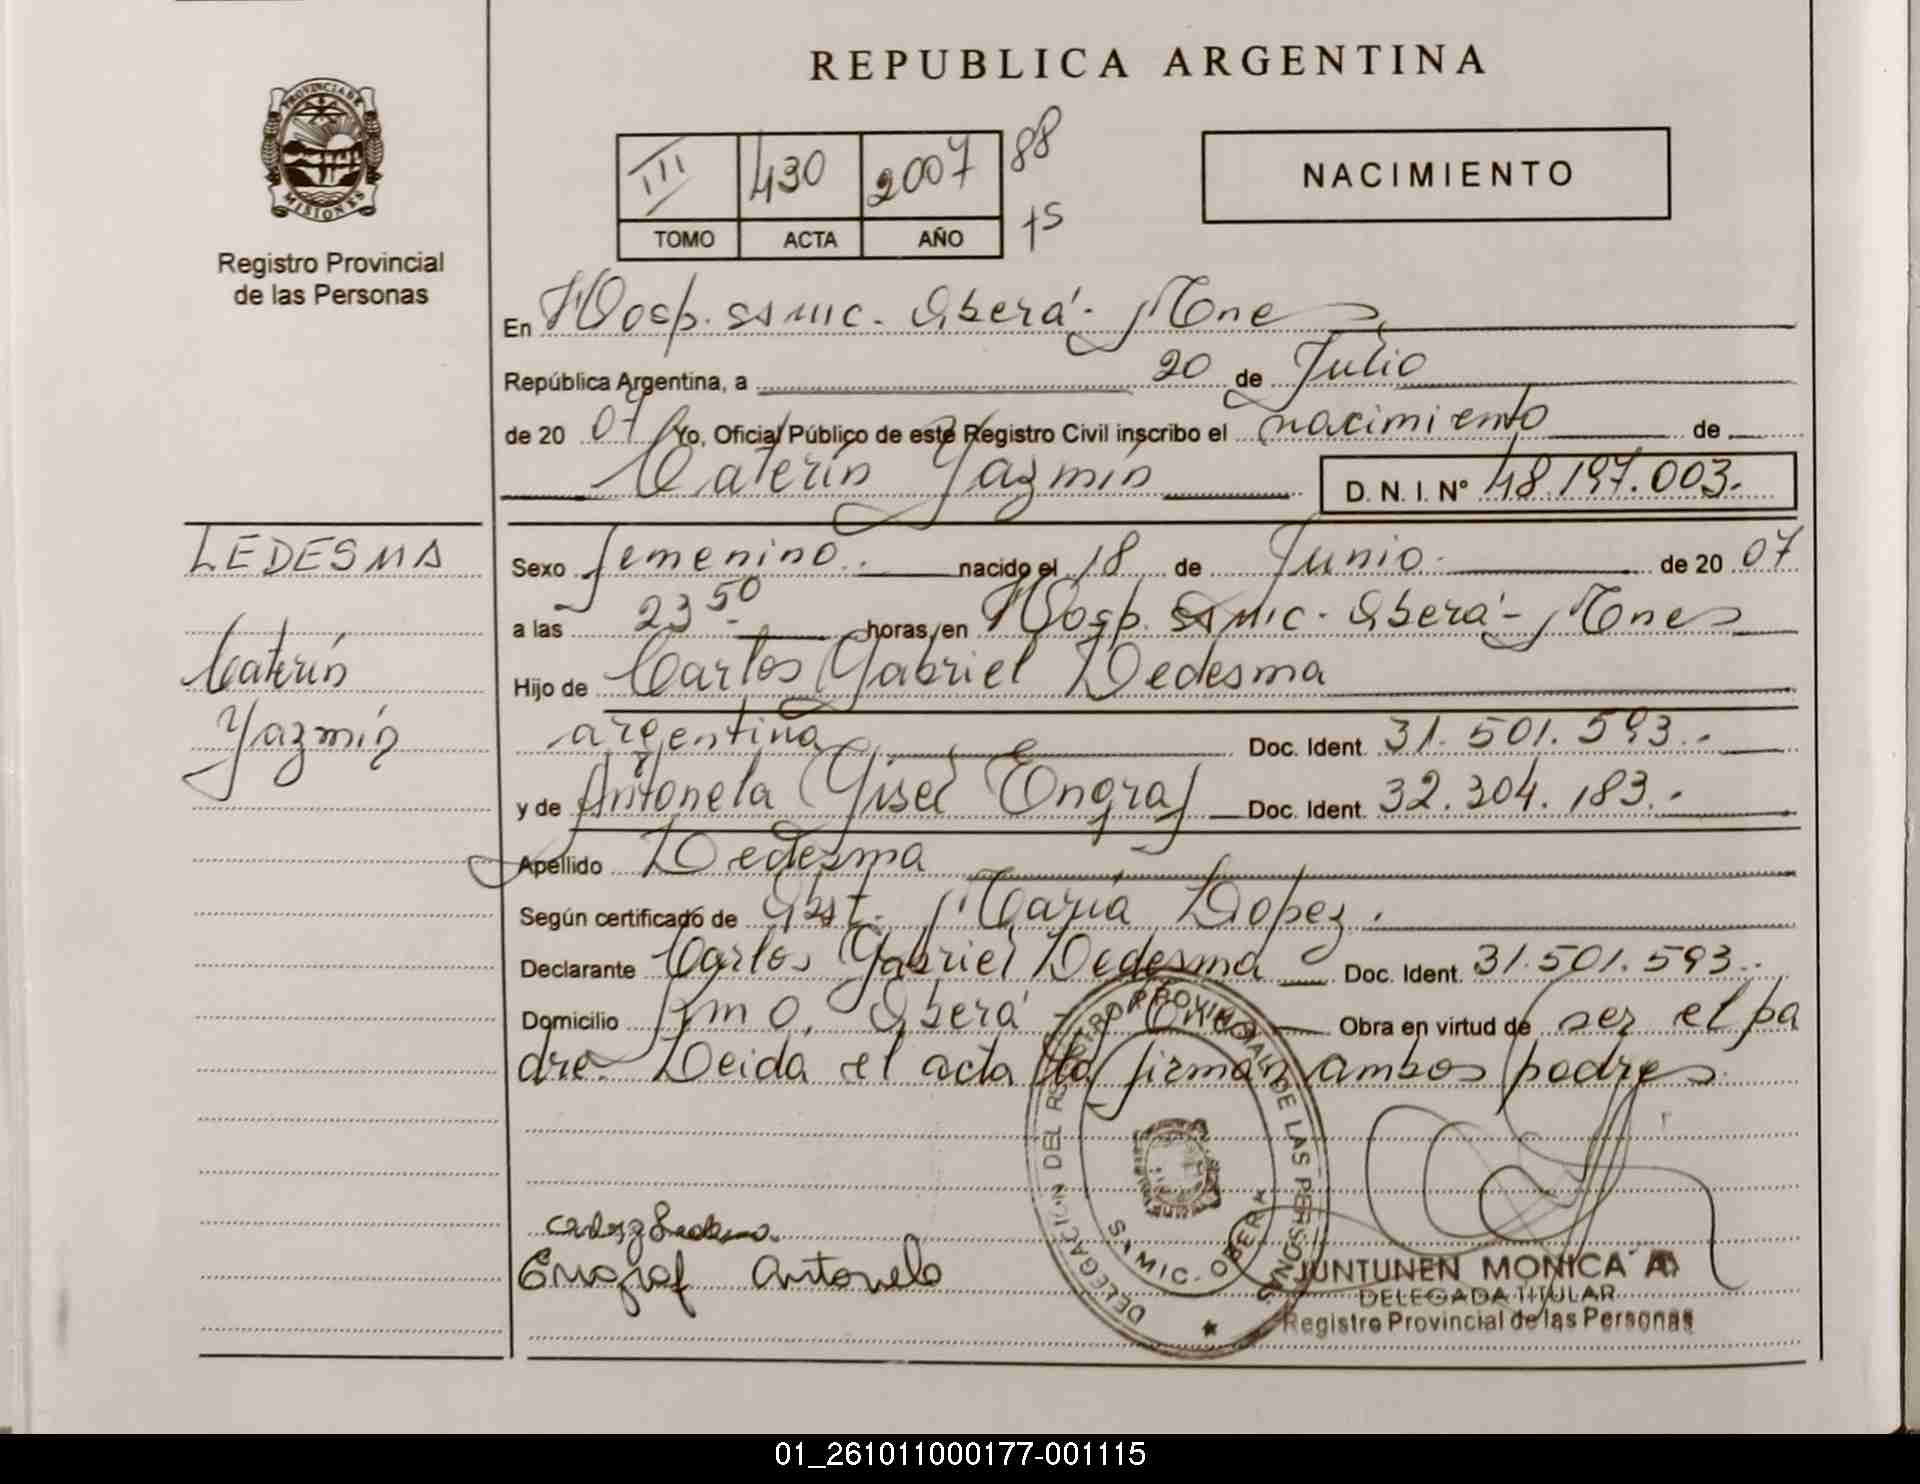 REPUBLICA ARGENTINA
PROVINCIA DE MISIONES
Registro Provincial
de las Personas
III 430 2007 88
TOMO ACTA AÑO 75
NACIMIENTO
En Hosp. SAMIC. Oberá - Mnes
República Argentina, a 20 de Julio
de 20 07 Yo, Oficial Público de este Registro Civil inscribo el nacimiento de
Caterín Yazmín D. N. I. N° 48.197.003.
LEDESMA
Caterín
Yazmín
Sexo femenino. nacido el 18 de Junio. de 20 07
a las 23 50 horas, en Hosp. SAMIC. Oberá - Mnes
Hijo de Carlos Gabriel Ledesma
argentina Doc. Ident. 31.501.593.
y de Antonela Gisel Engraf Doc. Ident. 32.304.183.
Apellido Ledesma
Según certificado de Obst. María Lopez.
Declarante Carlos Gabriel Ledesma Doc. Ident. 31.501.593.
Domicilio Oberá - Mnes Obra en virtud de ser el pa
dre. Leida el acta la firman ambos padres
Engraf Antonela
DELEGACION DEL REGISTRO PROVINCIAL DE LAS PERSONAS
SAMIC. OBERA
JUNTUNEN MONICA A
DELEGADA TITULAR
Registro Provincial de las Personas
01_261011000177-001115